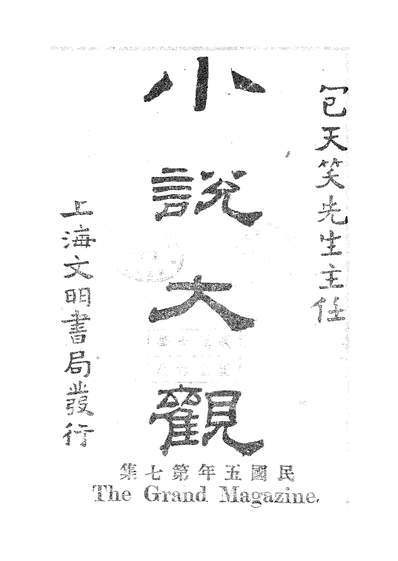 包天笑先生主任
小說大觀
上海文明書局發行
民國五年第七集
The Grand Magazine.